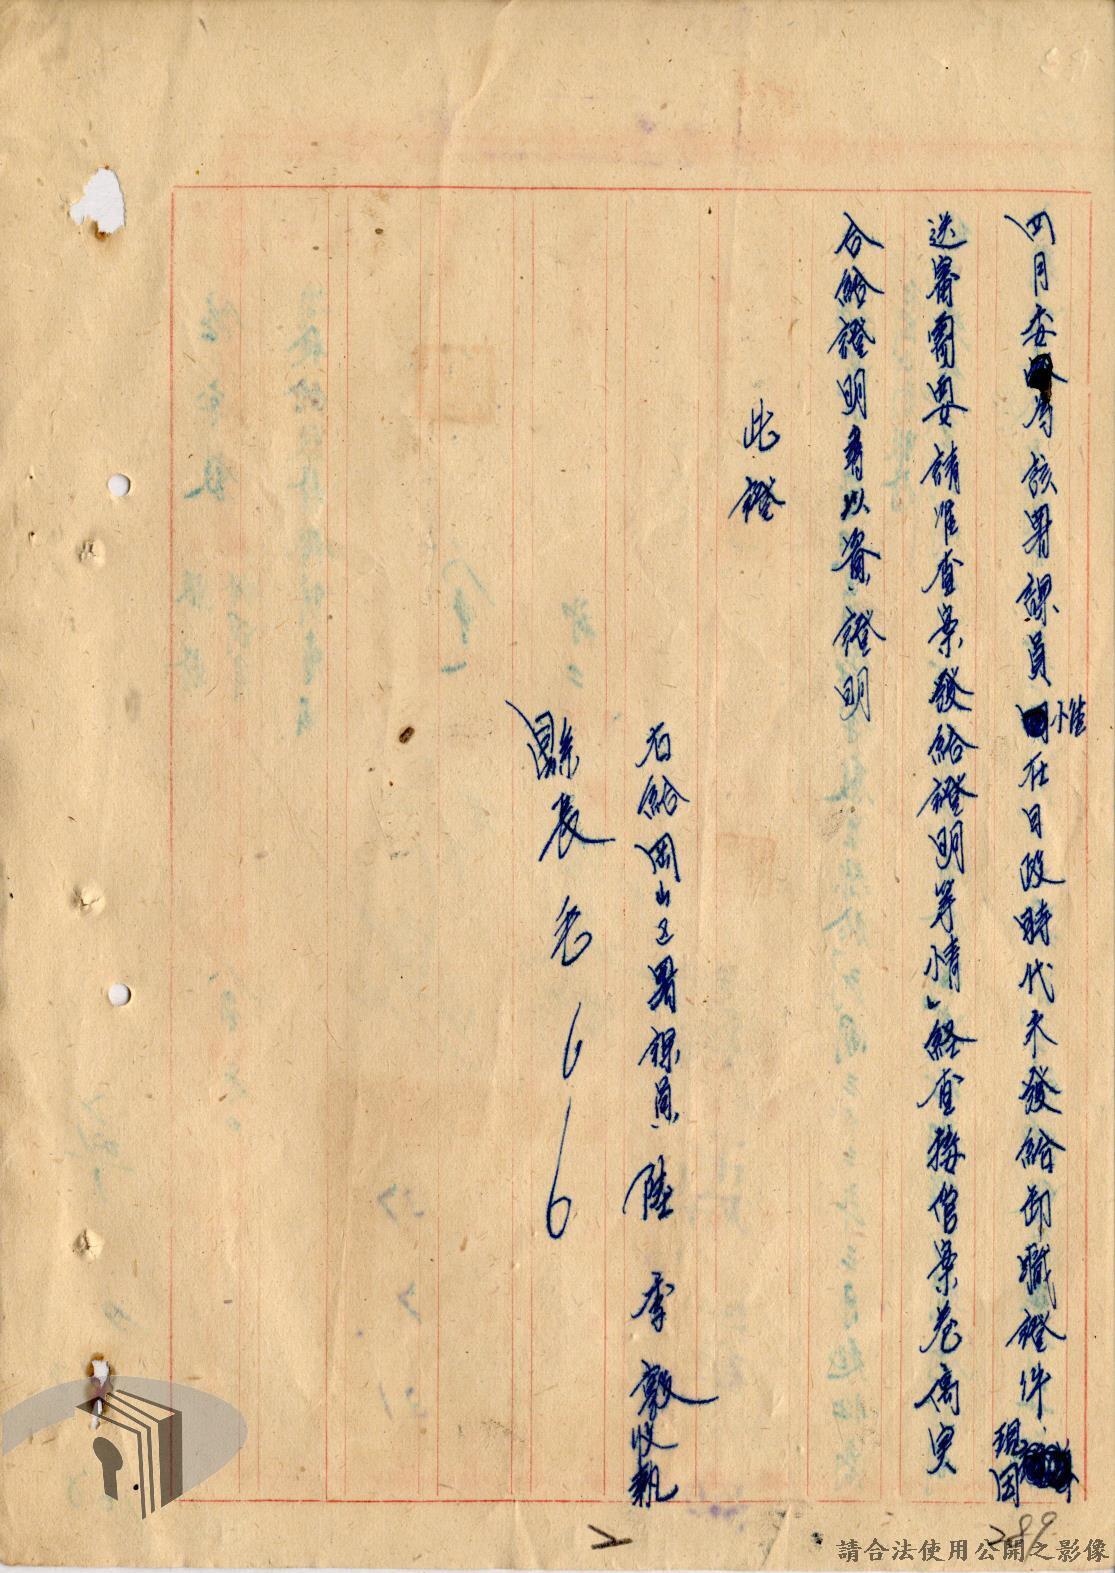 四月委為該署課員惟在日政時代未發給卸職證件現因
送審需要請准查案發給證明等情」経查接管案卷偹実
合給證明書以資證明
此證
右給岡山区署課員 陸季敦收執
縣長毛〇〇
289
2
請合法使用公開之影像